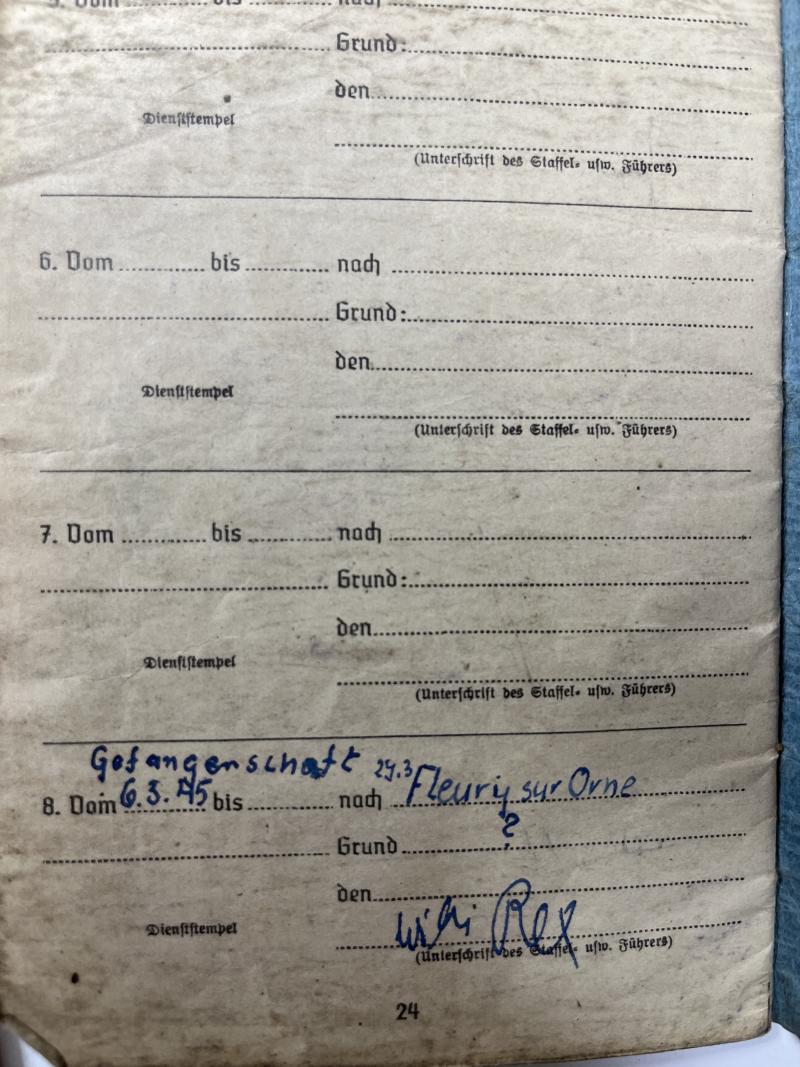 5. Vom ............ bis ............ nach ............
............ Grund: ............
den ............
Dienststempel
(Unterschrift des Staffel- usw. Führers)
6. Vom ............ bis ............ nach ............
............ Grund: ............
den ............
Dienststempel
(Unterschrift des Staffel- usw. Führers)
7. Vom ............ bis ............ nach ............
............ Grund: ............
den ............
Dienststempel
(Unterschrift des Staffel- usw. Führers)
Gefangenschaft 29.3
8. Vom 6.3.45 bis ............ nach Fleury sur Orne
............ Grund ............ ?
den ............
Willi Rex
Dienststempel
(Unterschrift des Staffel- usw. Führers)
24